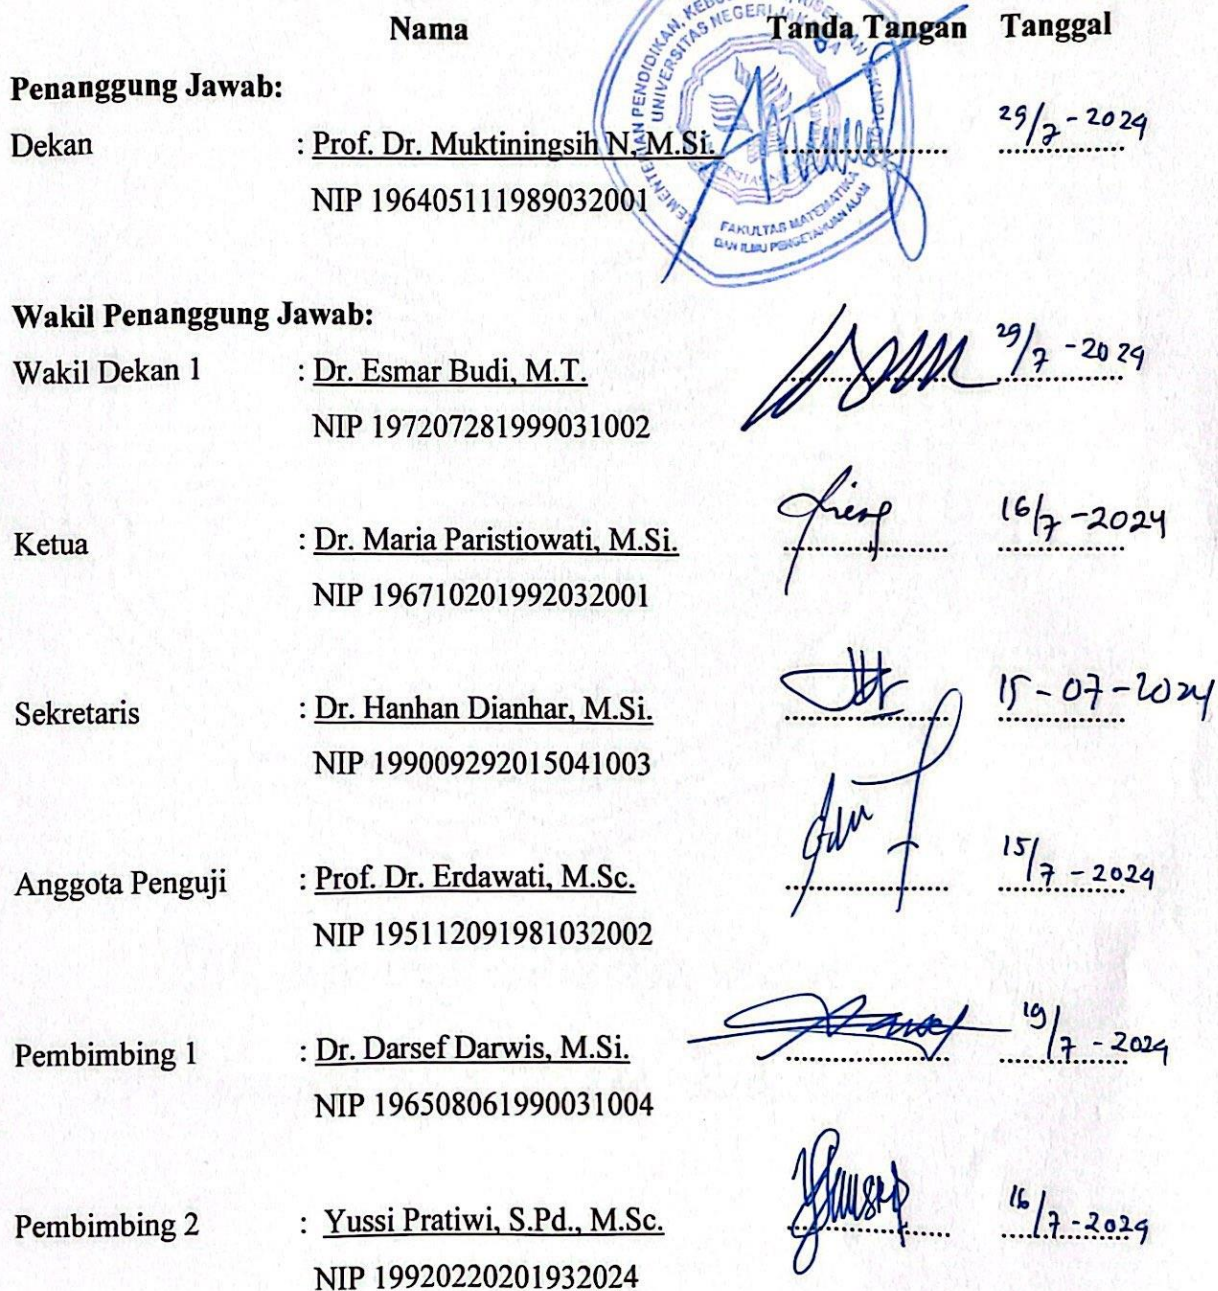 Nama Tanda Tangan Tanggal
Penanggung Jawab:
Dekan : Prof. Dr. Muktiningsih N, M.Si. 29/7-2024
NIP 196405111989032001
UNIVERSITAS NEGERI
FAKULTAS MATEMATIKA
DAN ILMU PENGETAHUAN ALAM
Wakil Penanggung Jawab:
Wakil Dekan 1 : Dr. Esmar Budi, M.T. 29/7-2024
NIP 197207281999031002
Ketua : Dr. Maria Paristiowati, M.Si. 16/7-2024
NIP 196710201992032001
Sekretaris : Dr. Hanhan Dianhar, M.Si. 15-07-2024
NIP 199009292015041003
Anggota Penguji : Prof. Dr. Erdawati, M.Sc. 15/7-2024
NIP 195112091981032002
Pembimbing 1 : Dr. Darsef Darwis, M.Si. 19/7-2024
NIP 196508061990031004
Pembimbing 2 : Yussi Pratiwi, S.Pd., M.Sc. 16/7-2024
NIP 19920220201932024